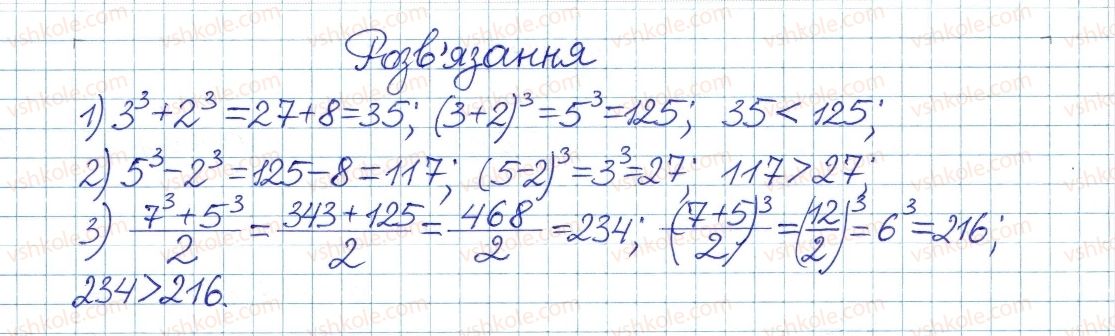 Розв'язання
1) 3³+2³=27+8=35; (3+2)³=5³=125; 35<125;
2) 5³-2³=125-8=117; (5-2)³=3³=27; 117>27;
3) (7³+5³)/2=(343+125)/2=468/2=234; ((7+5)/2)³=(12/2)³=6³=216;
234>216.